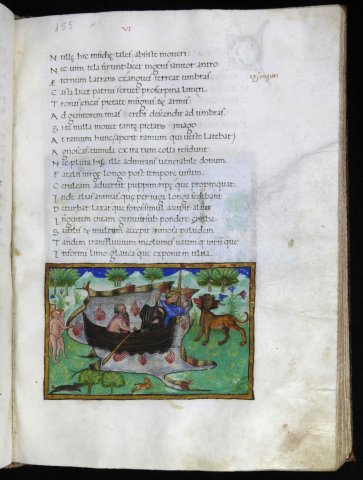 155
VI
Nullę hic insidię tales absiste moueri:
Nec uim tela ferunt: licet ingens ianitor antro
Ęternum latrans exangues terreat umbras.
Casta licet patrui seruet proserpina limen.
Troius eneas pietate insignis & armis
Ad genitorem imas erebi descendit ad umbras
Si te nulla mouet tantę pietatis imago
At ramum hunc (aperit ramum qui ueste latebat)
Agnoscas: tumida ex ira tum corda residunt
Nec plura his: ille admirans uenerabile donum
Fatalis uirgę longo post tempore uisum
Cęruleam aduertit puppim ripę que propinquat:
Inde alias animas que per iuga longa sedebant
Deturbat laxat que foros simul accipit alueo
Ingentem eneam gemuit sub pondere cimba
Sutilis & multam accepit rimosa paludem.
Tandem trans fluuium incolumes uatem que uirum que
Informi limo glauca que exponit in ulua